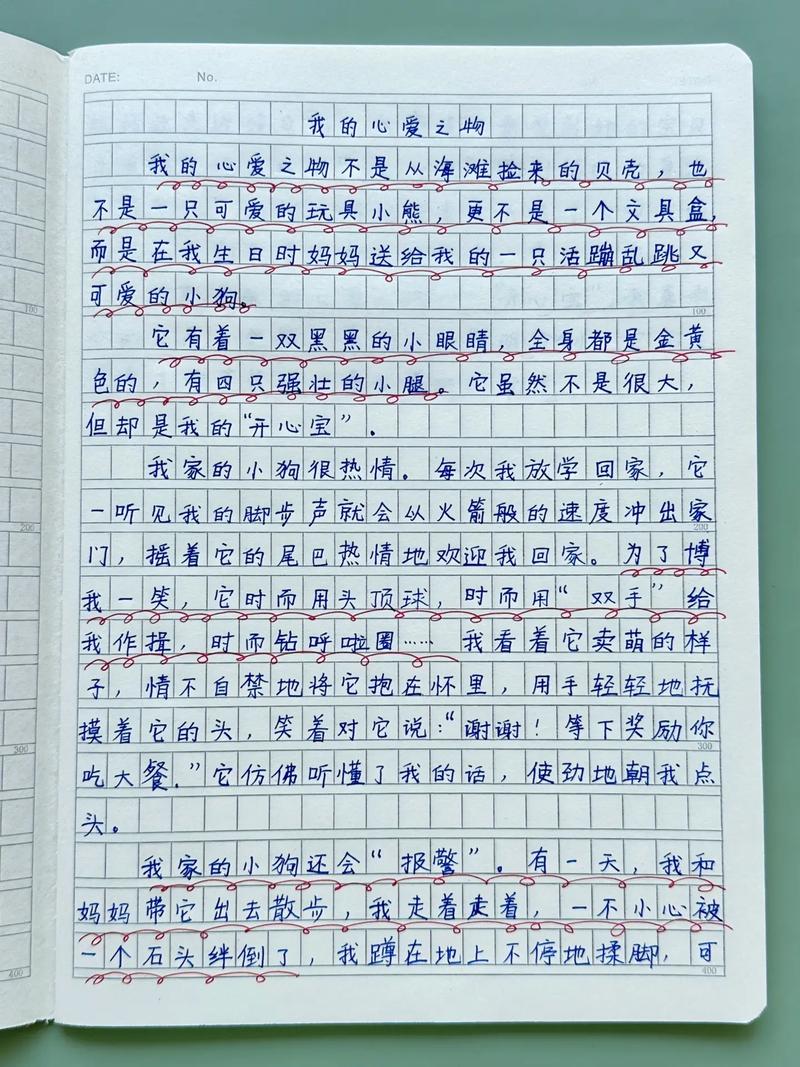 DATE: No.
我的心爱之物
我的心爱之物不是从海滩捡来的贝壳，也
不是一只可爱的玩具小熊，更不是一个文具盒，
而是在我生日时妈妈送给我的一只活蹦乱跳又
可爱的小狗。
100
它有着一双黑黑的小眼睛，全身都是金黄
色的，有四只强壮的小腿。它虽然不是很大，
但却是我的“开心宝”.
我家的小狗很热情。每次我放学回家，它
一听见我的脚步声就会从火箭般的速度冲出家
200
门，摇着它的尾巴热情地欢迎我回家。为了博
我一笑，它时而用头顶球，时而用“双手”给
我作揖，时而钻呼啦圈……我看着它卖萌的样
子，情不自禁地将它抱在怀里，用手轻轻地抚
摸着它的头，笑着对它说：“谢谢！等下奖励你
300
吃大餐.”它仿佛听懂了我的话，使劲地朝我点
头。
我家的小狗还会“报警”。有一天，我和
妈妈带它出去散步，我走着走着，一不小心被
一个石头绊倒了，我蹲在地上不停地揉脚，可
400
100
200
300
400